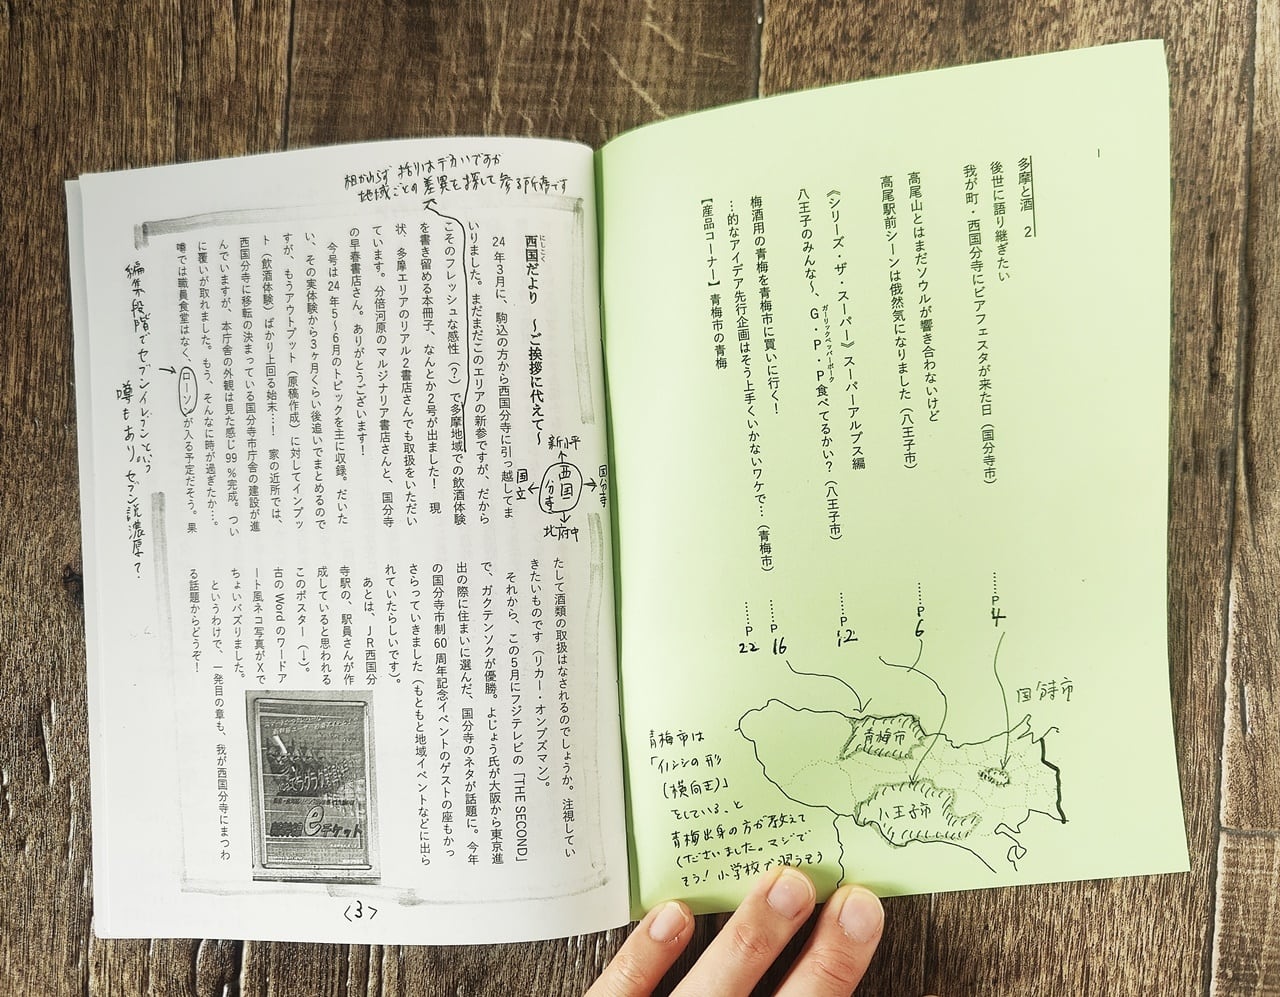 多摩と酒 2
後世に語り継ぎたい
我が町・西国分寺にビアフェスタが来た日（国分寺市）
……P 4
高尾山とはまだソウルが響き合わないけど
高尾駅前シーンは俄然気になりました（八王子市）
……P 6
《シリーズ・ザ・スーパー》スーパーアルプス編
八王子のみんな〜、G・P・P食べてるかい？（八王子市）
ガーリックペッパーポーク
……P 12
梅酒用の青梅を青梅市に買いに行く！
…的なアイデア先行企画はそう上手くいかないワケで…（青梅市）
……P 16
【産品コーナー】青梅市の青梅
……P 22
国分寺市
青梅市
八王子市
青梅市は
「イノシシの形
（横向き）」
をしている、と
青梅出身の方が教えて
くださいました。マジで
そう！小学校で習うそう
相かわらず括りはデカいですが
地域ごとの差異を探して参る所存です
西国だより　〜ご挨拶に代えて〜
にしこく
24年3月に、駒込の方から西国分寺に引っ越してま
いりました。まだまだこのエリアの新参ですが、だから
こそのフレッシュな感性（？）で多摩地域での飲酒体験
を書き留める本冊子、なんとか2号が出ました！　現
状、多摩エリアのリアル2書店さんでも取扱をいただい
ています。分倍河原のマルジナリア書店さんと、国分寺
の早春書店さん。ありがとうございます！
今号は24年5〜6月のトピックを主に収録。だいた
い、その実体験から3ヶ月くらい後追いでまとめるので
すが、もうアウトプット（原稿作成）に対してインプッ
ト（飲酒体験）ばかり上回る始末…！　家の近所では、
西国分寺に移転の決まっている国分寺市庁舎の建設が進
んでいますが、本庁舎の外観は見た感じ99％完成。つい
に覆いが取れました。もう、そんなに時が過ぎたか…。
噂では職員食堂はなく、ローソンが入る予定だそう。果
たして酒類の取扱はなされるのでしょうか。注視してい
きたいものです（リカー・オンブズマン）。
それから、この5月にフジテレビの「THE SECOND」
で、ガクテンソクが優勝。よじょう氏が大阪から東京進
出の際に住まいに選んだ、国分寺のネタが話題に。今年
の国分寺市制60周年記念イベントのゲストの座もかっ
さらっていきました（もともと地域イベントなどに出ら
れていたらしいです）。
あとは、JR西国分
寺駅の、駅員さんが作
成していると思われる
このポスター（↓）。
古のWordのワードア
ート風ネコ写真がXで
ちょいバズりました。
というわけで、一発目の章も、我が西国分寺にまつわ
る話題からどうぞ！
新小平
国分寺
西国分寺
国立
北府中
編集段階でセブンイレブンという
噂もあり。セブン説濃厚？
eチケット
<3>